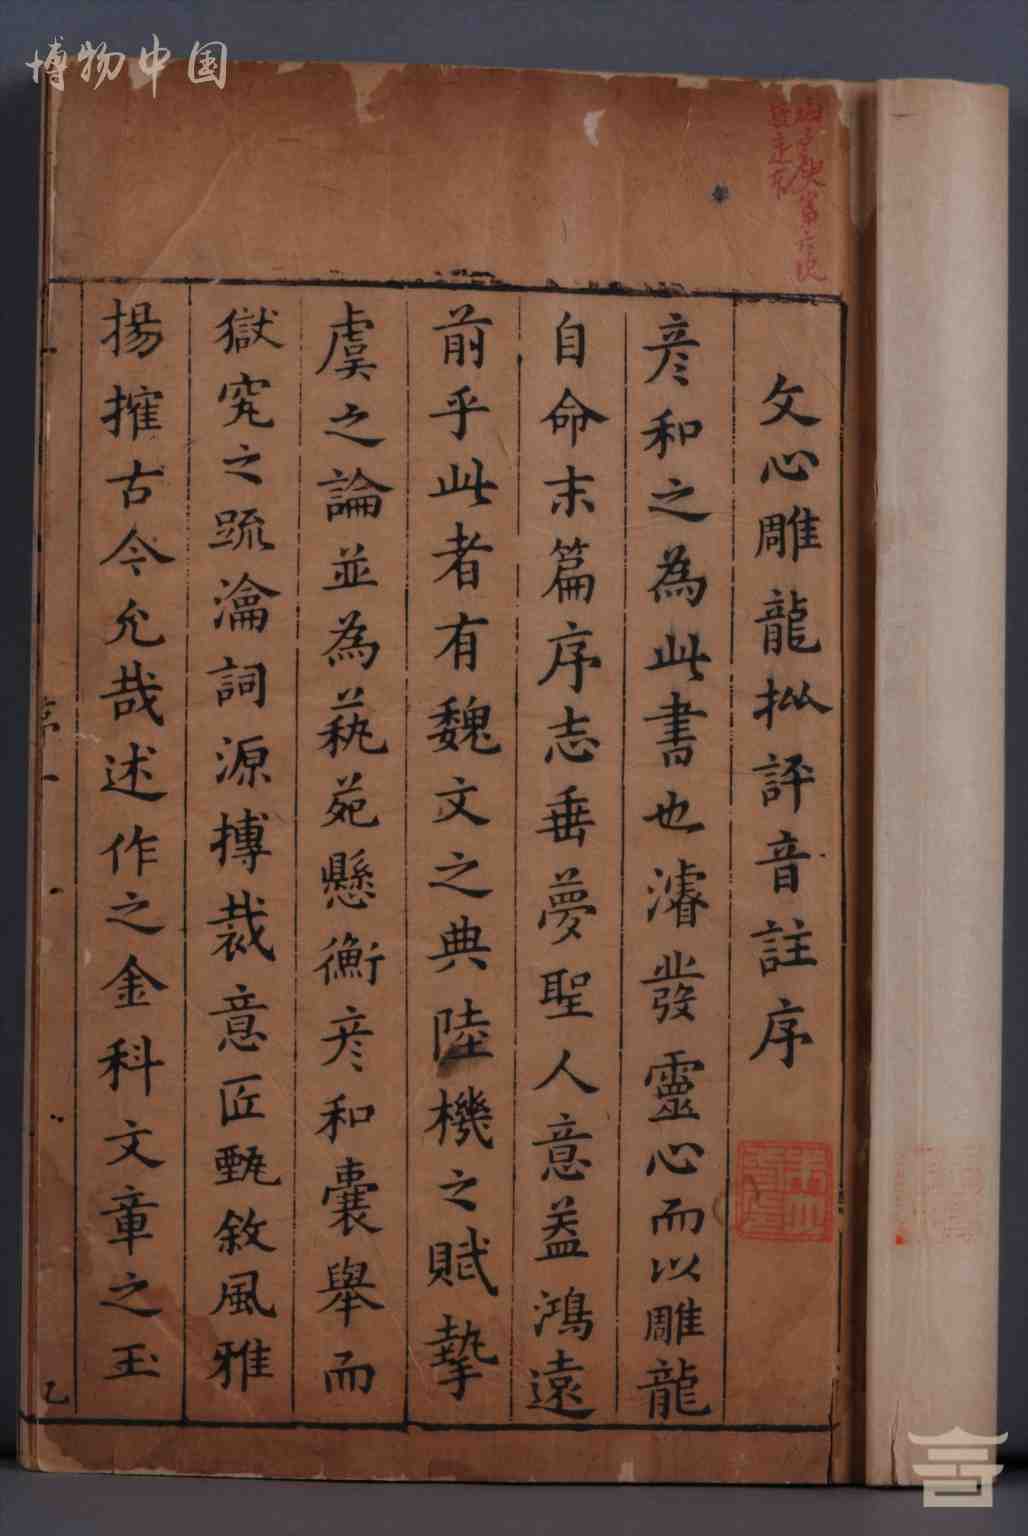 博物中国
文心雕龍批評音註序
彦和之為此書也濬發靈心而以雕龍
自命末篇序志垂夢聖人意益鴻遠
前乎此者有魏文之典陸機之賦摯
虞之論並為蓺苑懸衡彦和囊舉而
獄究之疏瀹詞源摶裁意匠甄敘風雅
揚搉古今允哉述作之金科文章之玉